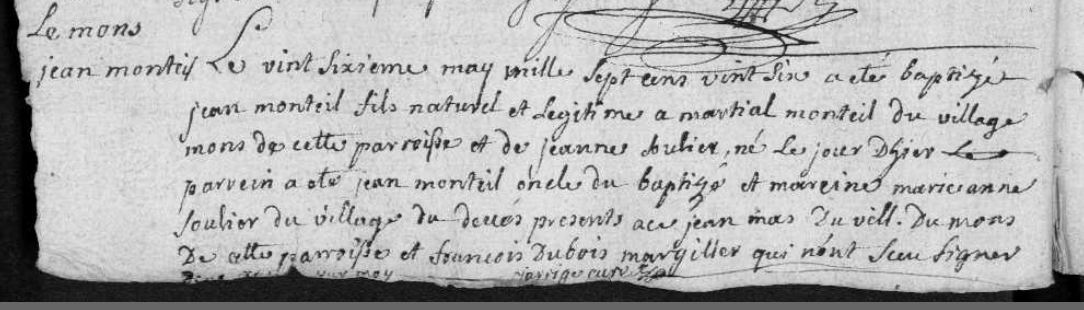 Le mons
jean monteil Le vint sixieme may mille sept cens vint six a eté baptizé
jean monteil fils naturel et Legitime a martial monteil du village
mons de cette parroisse et de jeanne soulier, né Le jour D'hier Le
parrein a eté jean monteil oncle du baptizé et mareine marie anne
soulier du village du presents a ce jean mas Du vill. Du mons
De cette parroisse et francois Dubois margiller qui n'ont sceu signer
par moy cure